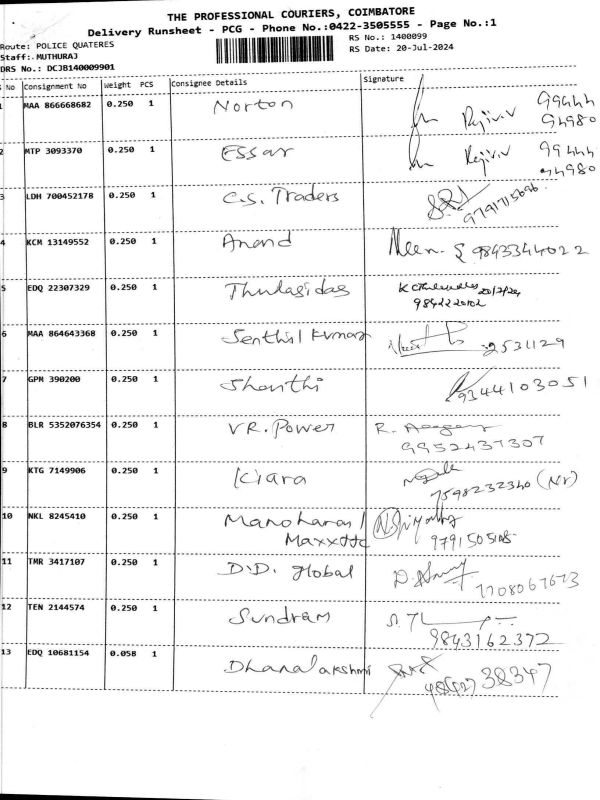 THE PROFESSIONAL COURIERS, COIMBATORE
Delivery Runsheet - PCG - Phone No.:0422-3505555 - Page No.:1
Route: POLICE QUATERES
RS No.: 1400099
Staff: MUTHURAJ
RS Date: 20-Jul-2024
DRS No.: DCJB140009901
S No Consignment No Weight PCS Consignee Details Signature
1 MAA 866668682 0.250 1 Norton 99444
94980
2 MTP 3093370 0.250 1 Essar 99444
94980
3 LDH 700452178 0.250 1 C.S. Traders
9791715696
4 KCM 13149552 0.250 1 Anand 9843344022
5 EDQ 22307329 0.250 1 Thulasidas 20/7/24
6 MAA 864643368 0.250 1 Senthil Kumar 2531129
7 GPM 390200 0.250 1 Shanthi 9344103051
8 BLR 5352076354 0.250 1 V.R. Power R.
9952437307
9 KTG 7149906 0.250 1 Kiara
7598232340
10 NKL 8245410 0.250 1 Manoharan /
Maxxttc 9791505108
11 TMR 3417107 0.250 1 D.D. Global
7708067673
12 TEN 2144574 0.250 1 Sundram
9843162372
13 EDQ 10681154 0.058 1 Dhanalakshmi
38347